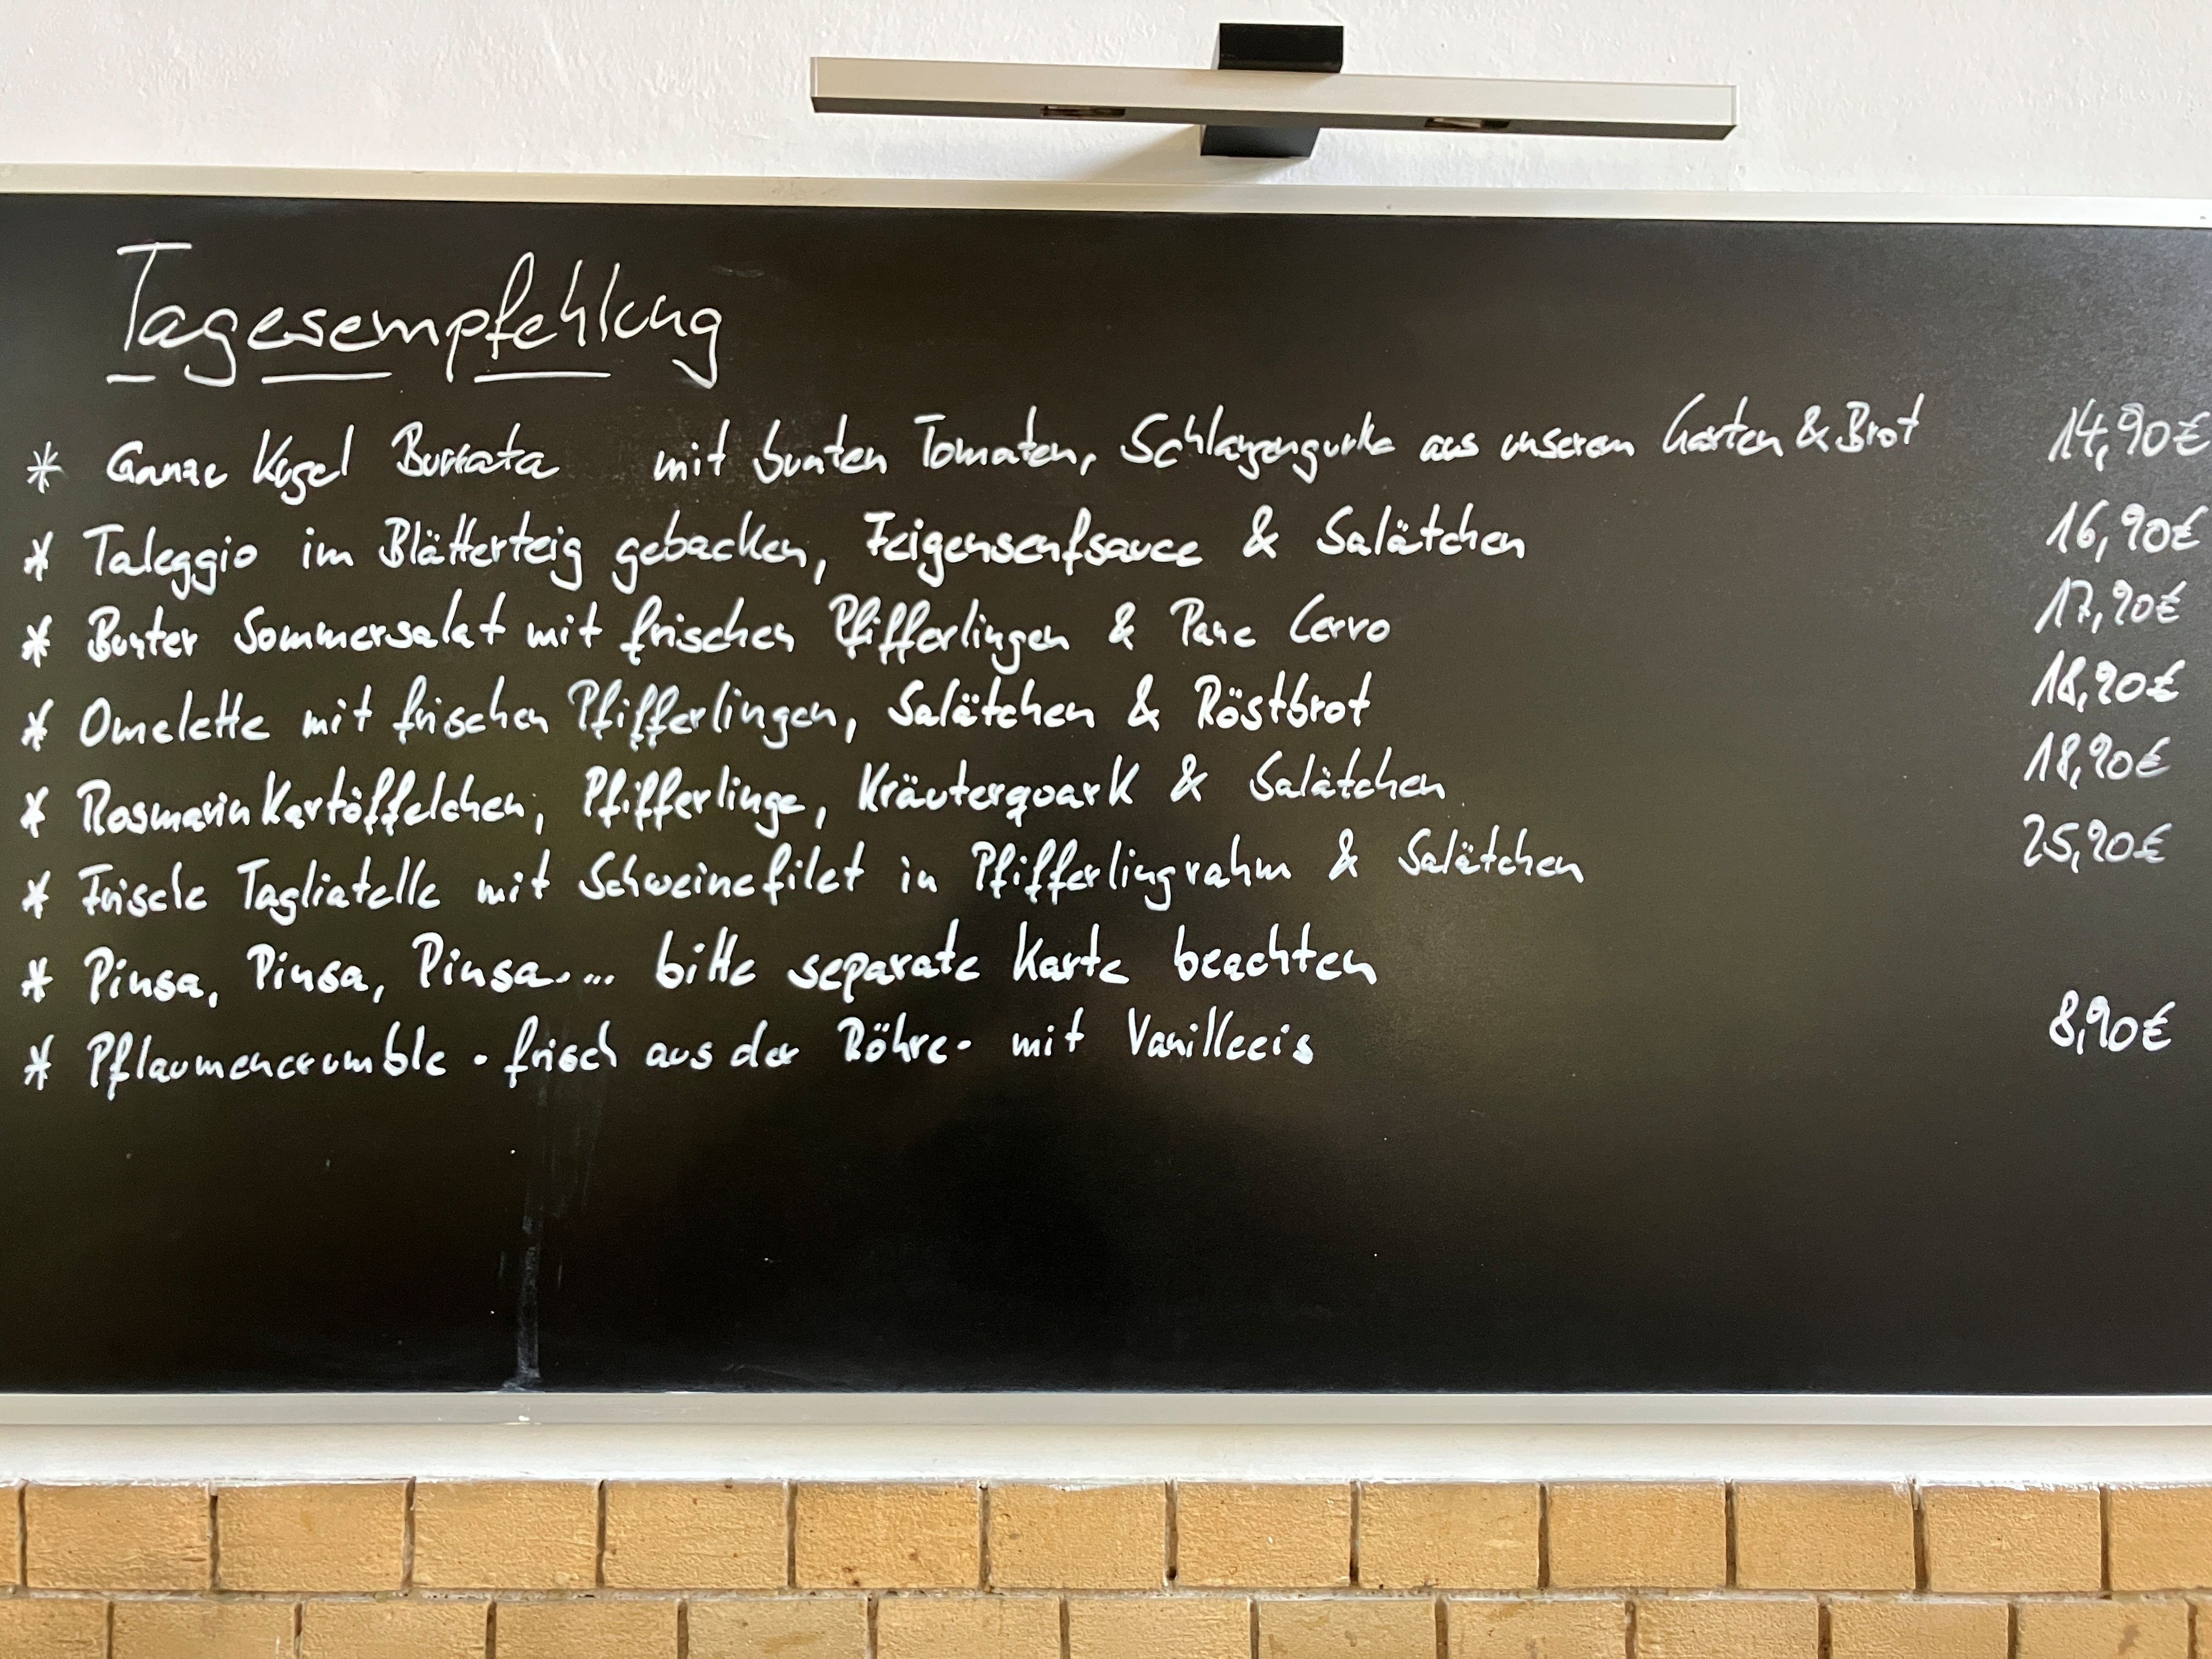 Tagesempfehlung
* Ganze Kugel Burrata mit bunten Tomaten, Schlangengurke aus unserem Garten & Brot 14,90€
* Taleggio im Blätterteig gebacken, Feigensenfsauce & Salätchen 16,90€
* Bunter Sommersalat mit frischen Pfifferlingen & Pane Cervo 17,90€
* Omelette mit frischen Pfifferlingen, Salätchen & Röstbrot 18,90€
* Rosmarin Kartöffelchen, Pfifferlinge, Kräuterquark & Salätchen 18,90€
* Frische Tagliatelle mit Schweinefilet in Pfifferlingrahm & Salätchen 25,90€
* Pinsa, Pinsa, Pinsa.... bitte separate Karte beachten
* Pflaumencrumble - frisch aus der Röhre - mit Vanilleeis 8,90€